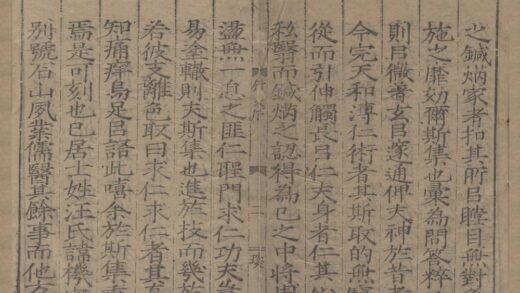 之鍼焫家者扣其所㠯瞠目無對
施之靡効爾斯集也彙為問答粹
則㠯徹著玄㠯邃通俾夫神於昔者
令完天和溥仁術者其斯取的無
從而引伸觸長㠯仁夫身者仁其
私翳而鍼焫之認得為己之中將
針序
二
琰
盪無一息之匪仁聖門求仁功夫
易塗轍則夫斯集也進於技而幾於
若彼支離色取曰求仁求仁者其
知痛癢烏足㠯語此嘻余於斯集
焉是可刻也已居士姓汪氏諱機
別號石山夙業儒醫其餘事而他